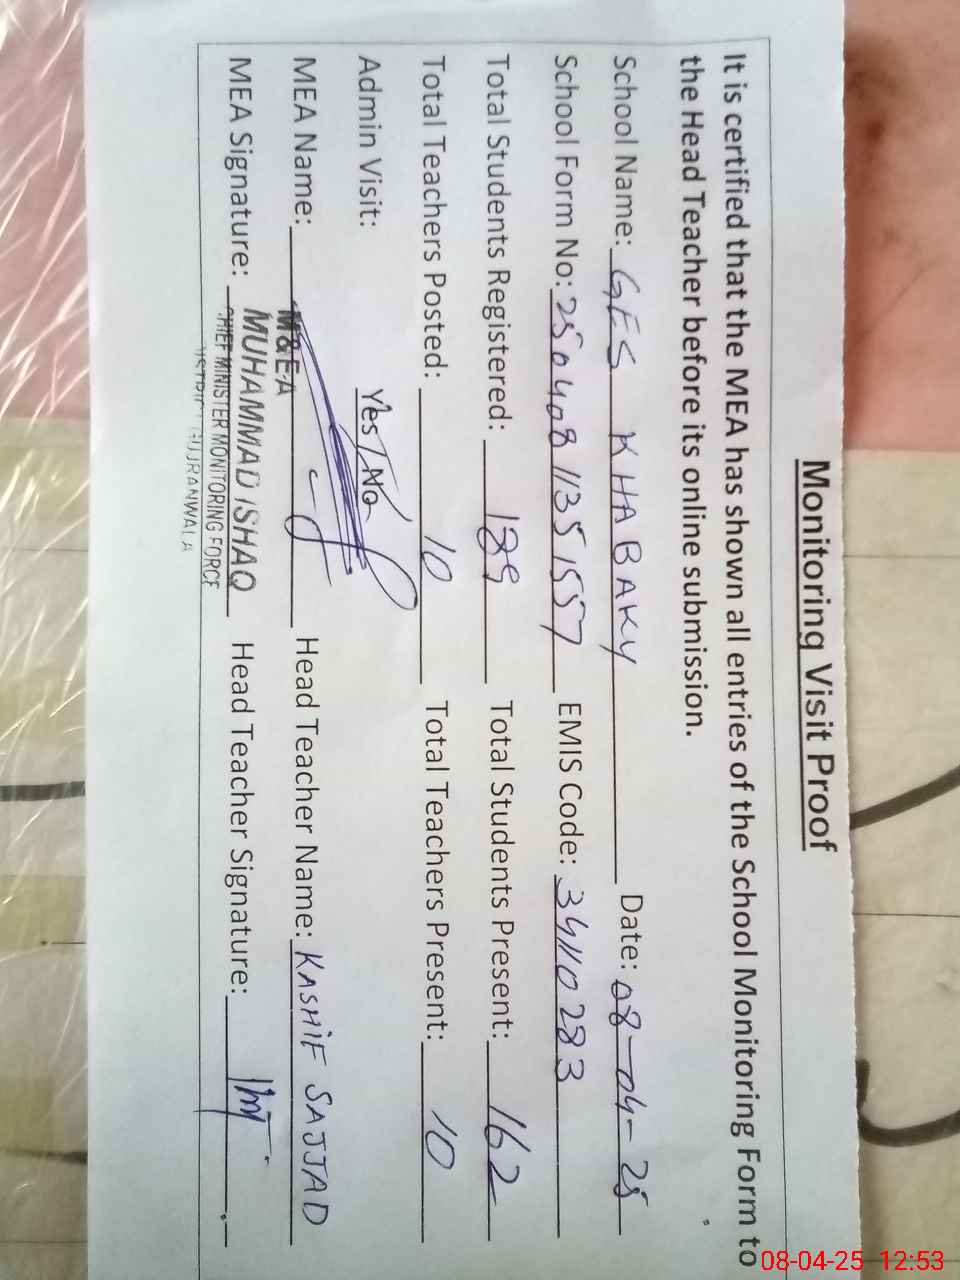 Monitoring Visit Proof
It is certified that the MEA has shown all entries of the School Monitoring Form to
the Head Teacher before its online submission.
School Name: GES KHABAKY Date: 08-04-25
School Form No: 250408 1135 1557 EMIS Code: 34110283
Total Students Registered: 189 Total Students Present: 162
Total Teachers Posted: 10 Total Teachers Present: 10
Admin Visit: Yes / No
MEA Name: Head Teacher Name: KASHIF SAJJAD
M&EA
MEA Signature: MUHAMMAD ISHAQ Head Teacher Signature:
CHIEF MINISTER MONITORING FORCE
DISTRICT GUJRANWALA
08-04-25 12:53